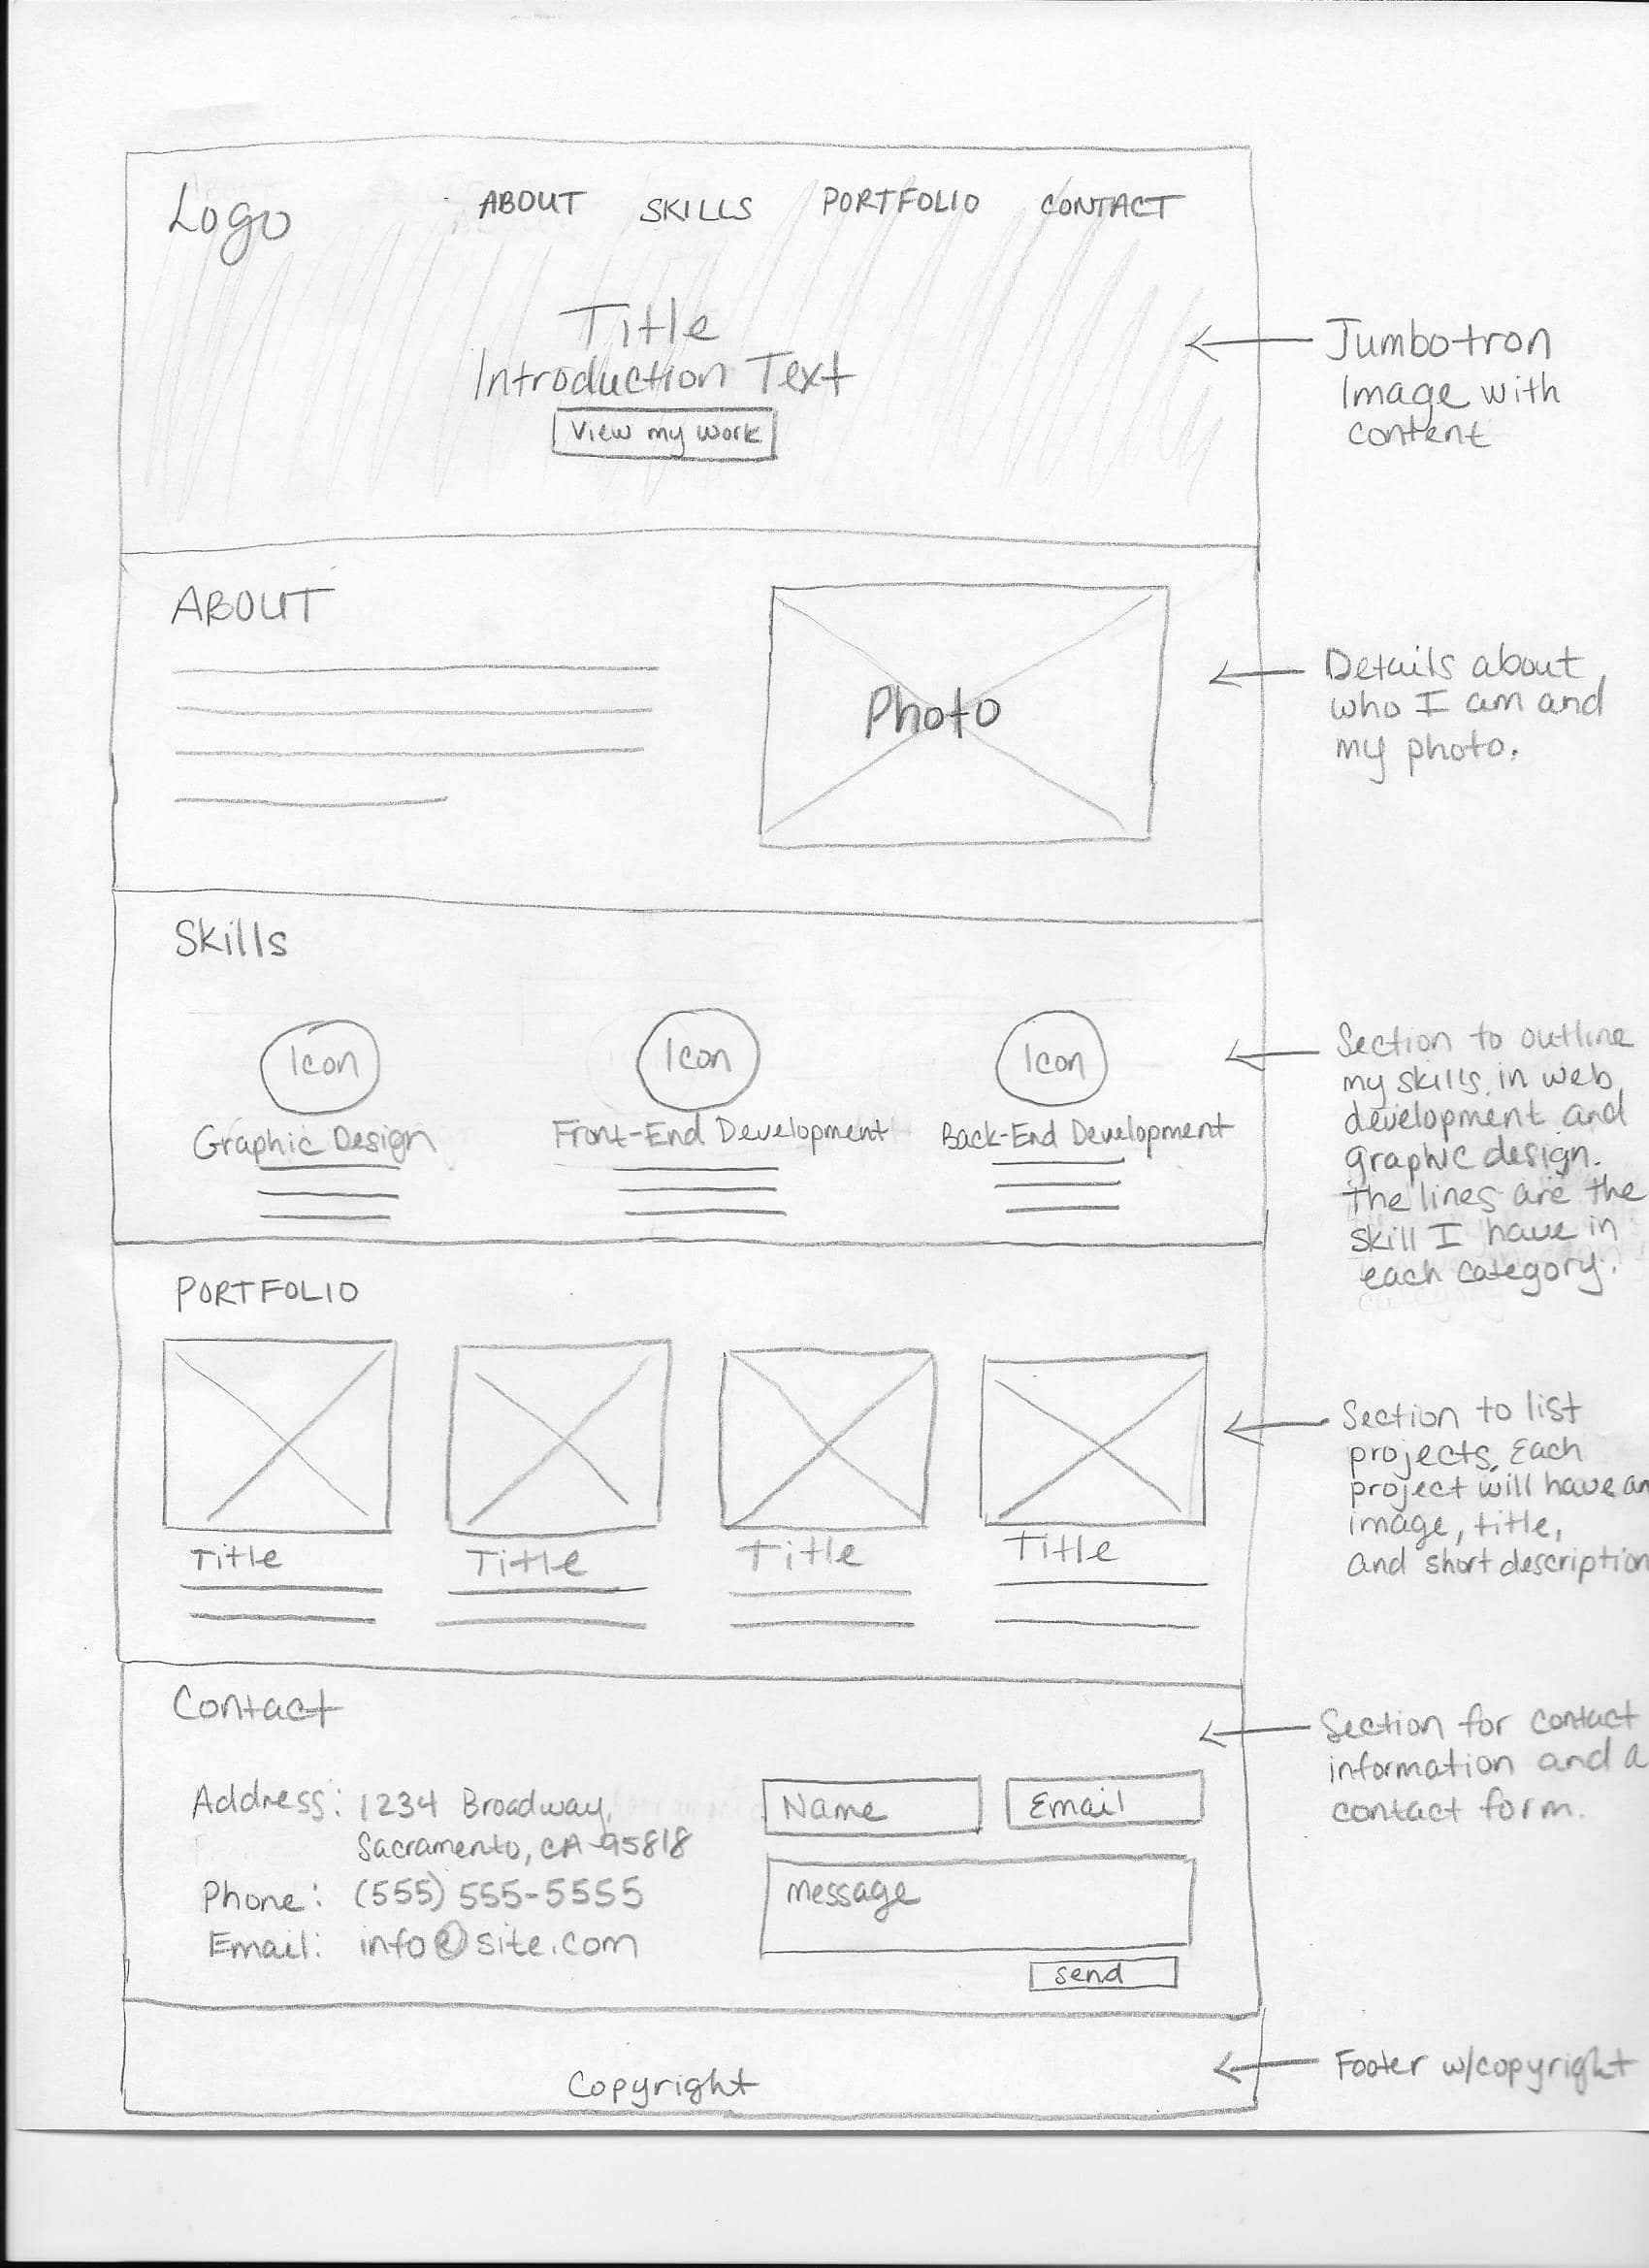 Logo
ABOUT SKILLS PORTFOLIO CONTACT
Title
Introduction Text
View my work
Jumbotron
Image with
content
ABOUT
Photo
Details about
who I am and
my photo.
Skills
Icon Icon Icon
Graphic Design Front-End Development Back-End Development
Section to outline
my skills in web
development and
graphic design.
The lines are the
skill I have in
each category.
PORTFOLIO
Title Title Title Title
Section to list
projects. Each
project will have an
image, title,
and short description
Contact
Address: 1234 Broadway,
Sacramento, CA 95818
Phone: (555) 555-5555
Email: info@site.com
Name Email
message
send
Section for contact
information and a
contact form.
Copyright
Footer w/copyright